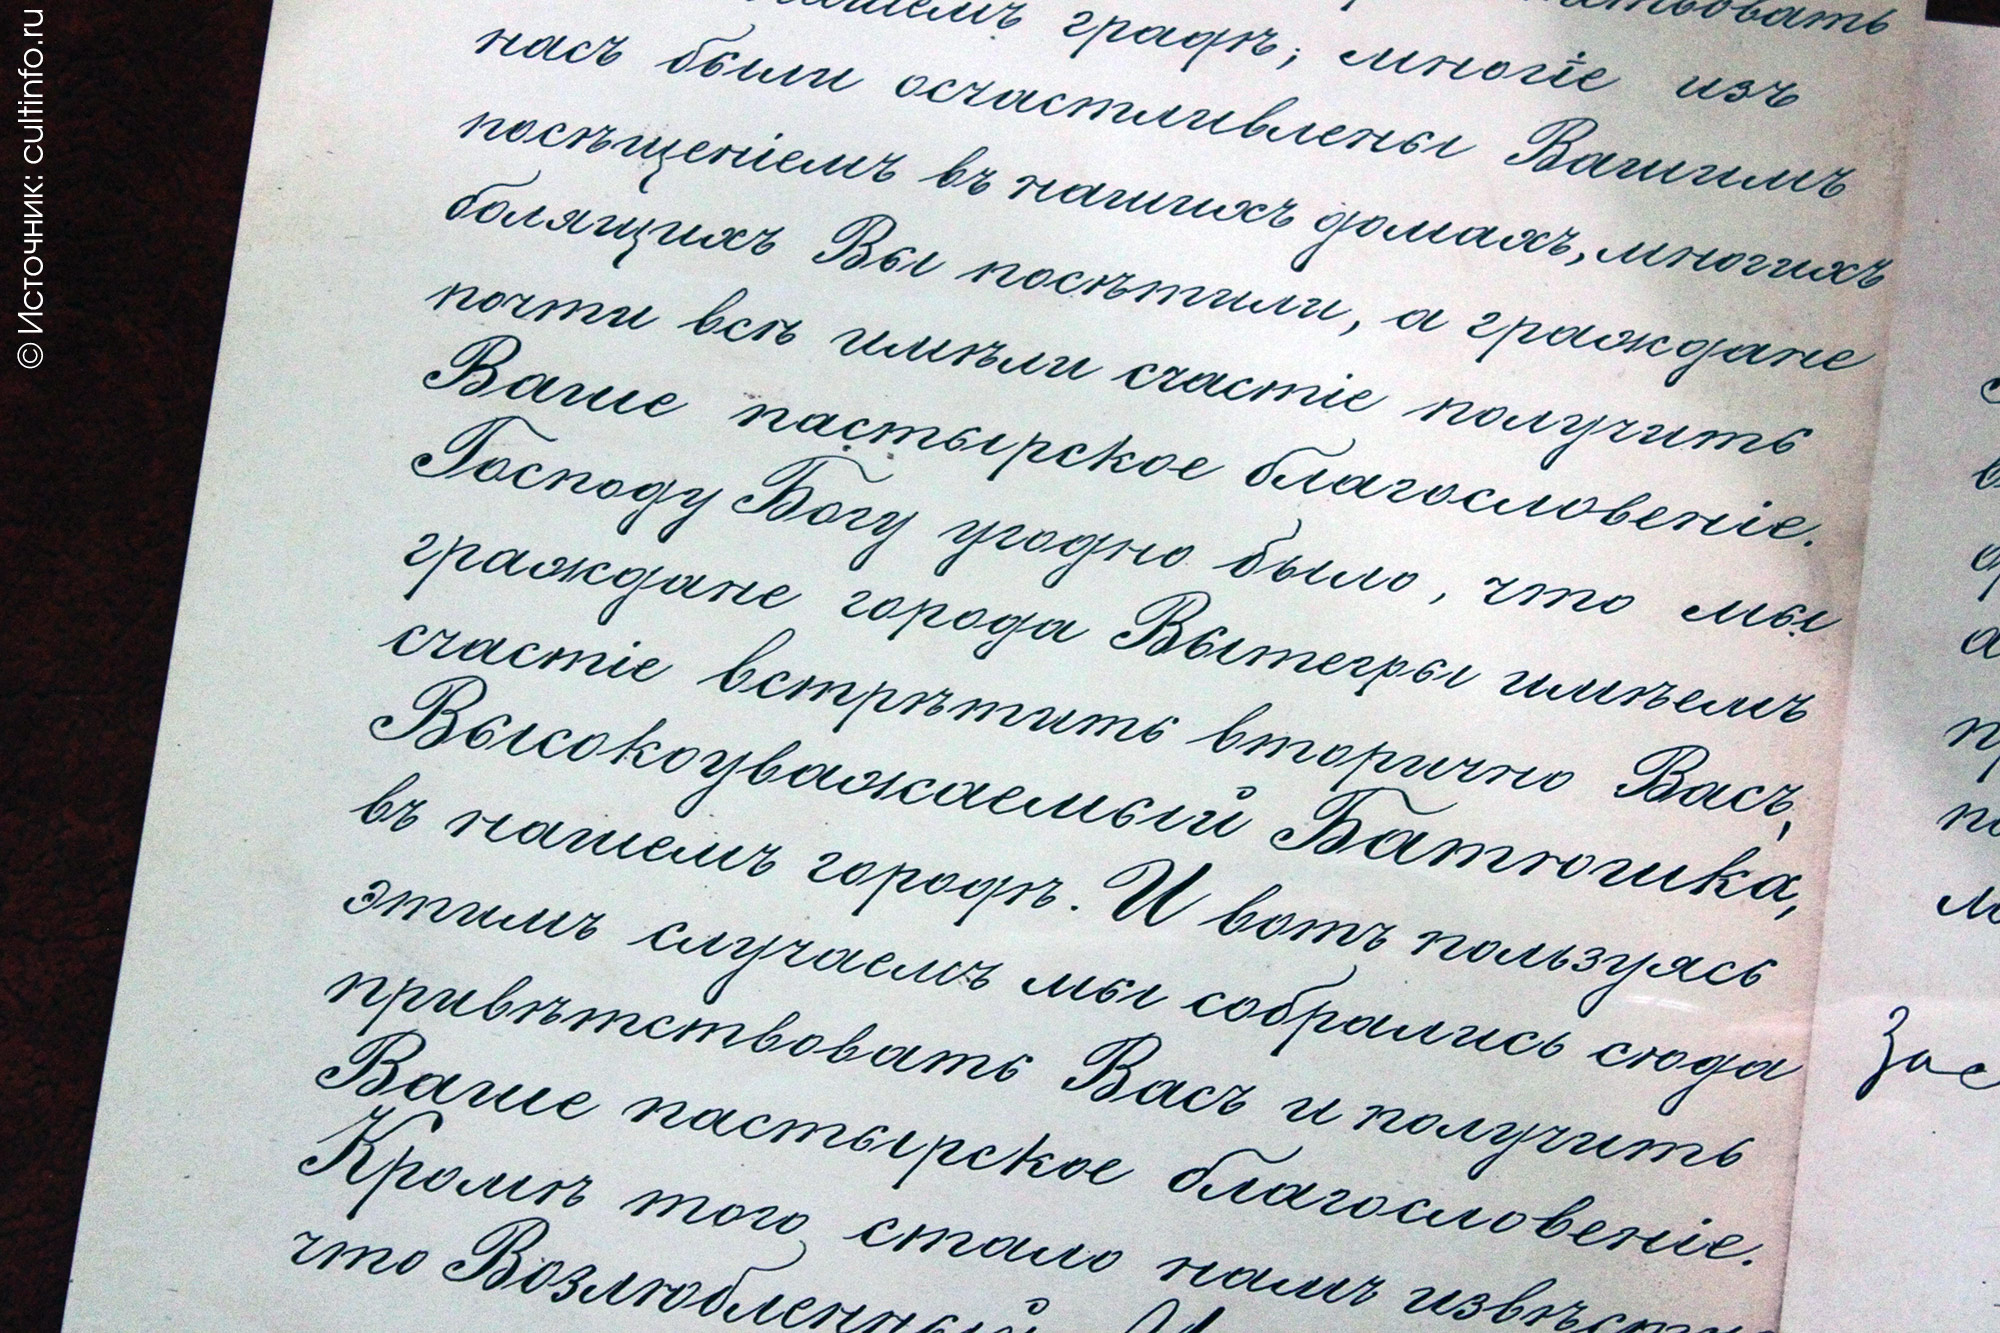 нашемъ градѣ; многіе изъ
насъ были осчастливлены Вашимъ
посѣщеніемъ въ нашихъ домахъ, многихъ
болящихъ Вы посѣтили, а граждане
почти всѣ имѣли счастіе получить
Ваше пастырское благословеніе.
Господу Богу угодно было, что мы
граждане города Вытегры имѣемъ
счастіе встрѣтить вторично Васъ,
Высокоуважаемый Батюшка,
въ нашемъ городѣ. И вотъ пользуясь
этимъ случаемъ мы собрались сюда
привѣтствовать Васъ и получить
Ваше пастырское благословеніе.
Кромѣ того, стало намъ
что Возлюбленный
© Источник: cultinfo.ru